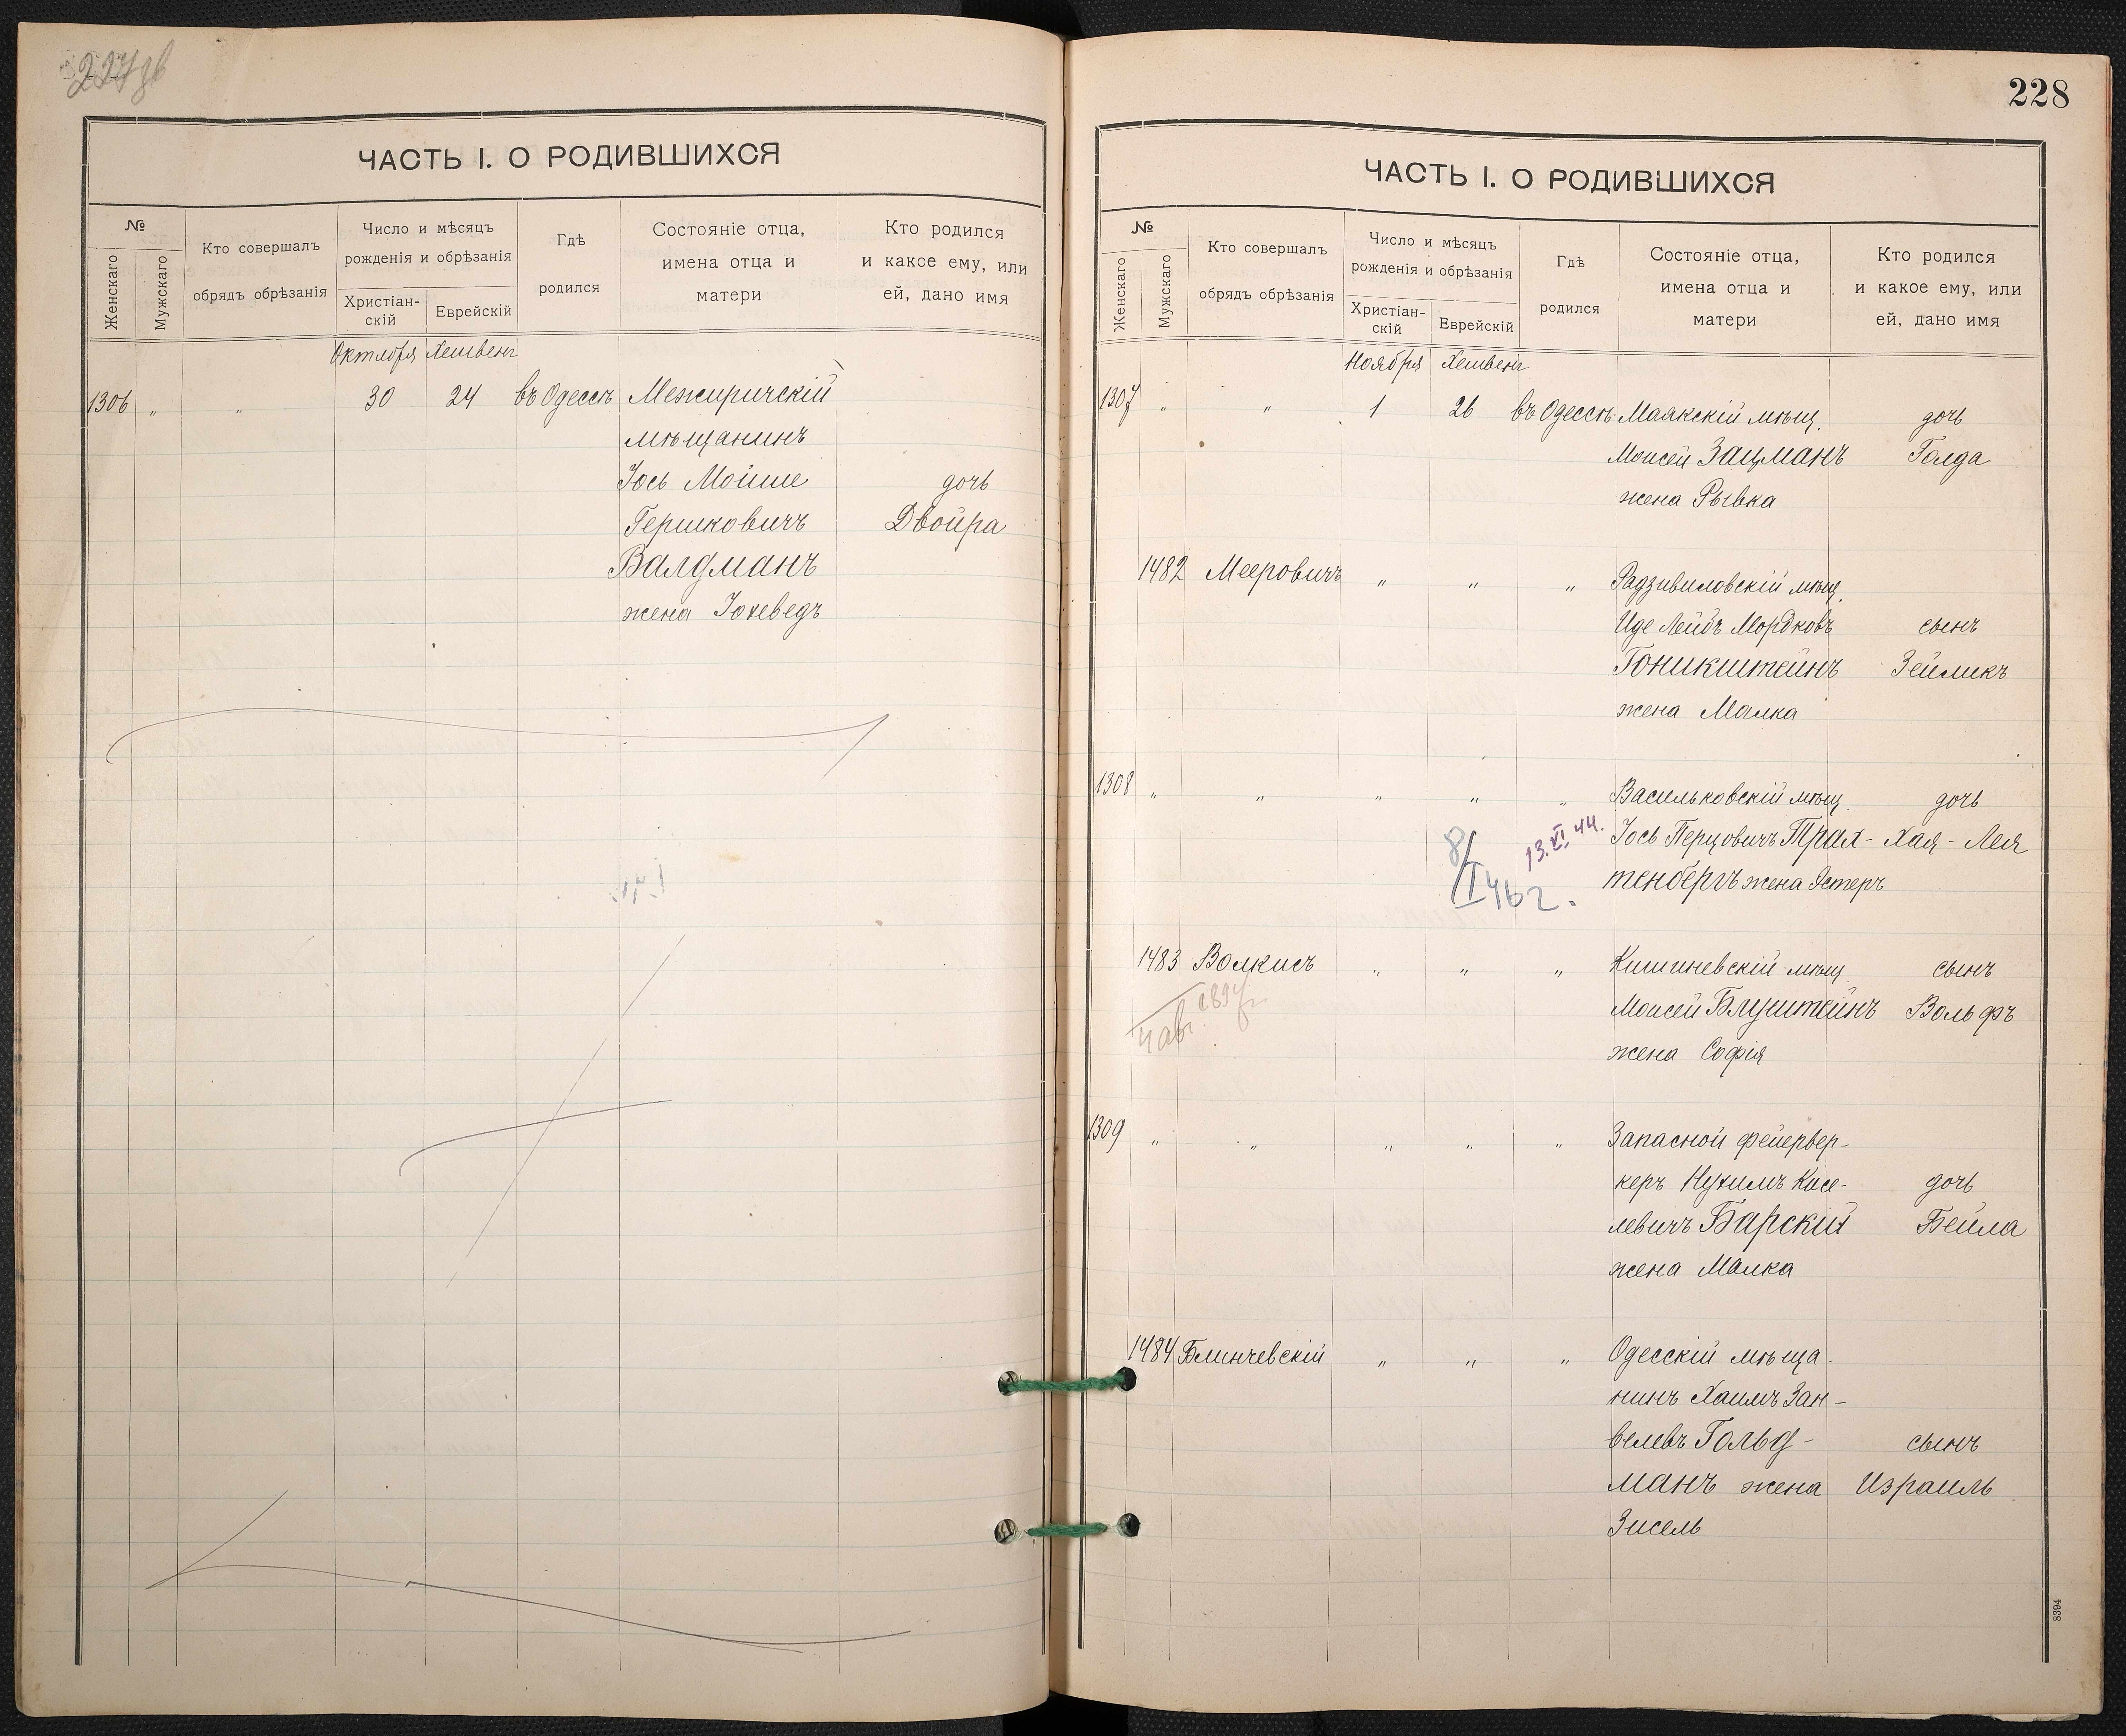 ЧАСТЬ I. О РОДИВШИХСЯ
№
Женскаго
Мужскаго
Кто совершалъ
обрядъ обрѣзанія
Число и мѣсяцъ
рожденія и обрѣзанія
Христіан-
скій
Еврейскій
Гдѣ
родился
Состояніе отца,
имена отца и
матери
Кто родился
и какое ему, или
ей, дано имя
Октября Хешвенъ
1306 „ „ 30 24 въ Одессѣ Межиричскій
мѣщанинъ
Іось Мойше дочь
Гершковичъ Двойра
Валдманъ
жена Іохеведъ
228
ЧАСТЬ I. О РОДИВШИХСЯ
№
Женскаго
Мужскаго
Кто совершалъ
обрядъ обрѣзанія
Число и мѣсяцъ
рожденія и обрѣзанія
Христіан-
скій
Еврейскій
Гдѣ
родился
Состояніе отца,
имена отца и
матери
Кто родился
и какое ему, или
ей, дано имя
Ноября Хешвенъ
1307 „ „ 1 26 въ Одессѣ Маякскій мѣщ. дочь
Моисей Зацманъ Голда
жена Рывка
1482 Мееровичъ „ „ „ Радзивиловскій мѣщ.
Иде Лейбъ Мордковъ сынъ
Гоникштейнъ Зейликъ
жена Малка
1308 „ „ „ „ „ Васильковскій мѣщ. дочь
13.VI.44. Іось Перцовичъ Трах- Хая-Лея
8/I 46г. тенбергъ жена Эстеръ
1483 Волкисъ „ „ „ Кишиневскій мѣщ. сынъ
Моисей Блуштейнъ Вольфъ
жена Софія
1309 „ „ „ „ „ Запасной фейервер-
керъ Нухимъ Кисе- дочь
левичъ Барскій Бейла
жена Малка
1484 Блинчевскій „ „ „ Одесскій мѣща-
нинъ Хаимъ Зан-
велевъ Гольд- сынъ
манъ жена Израиль
Зисель
8394